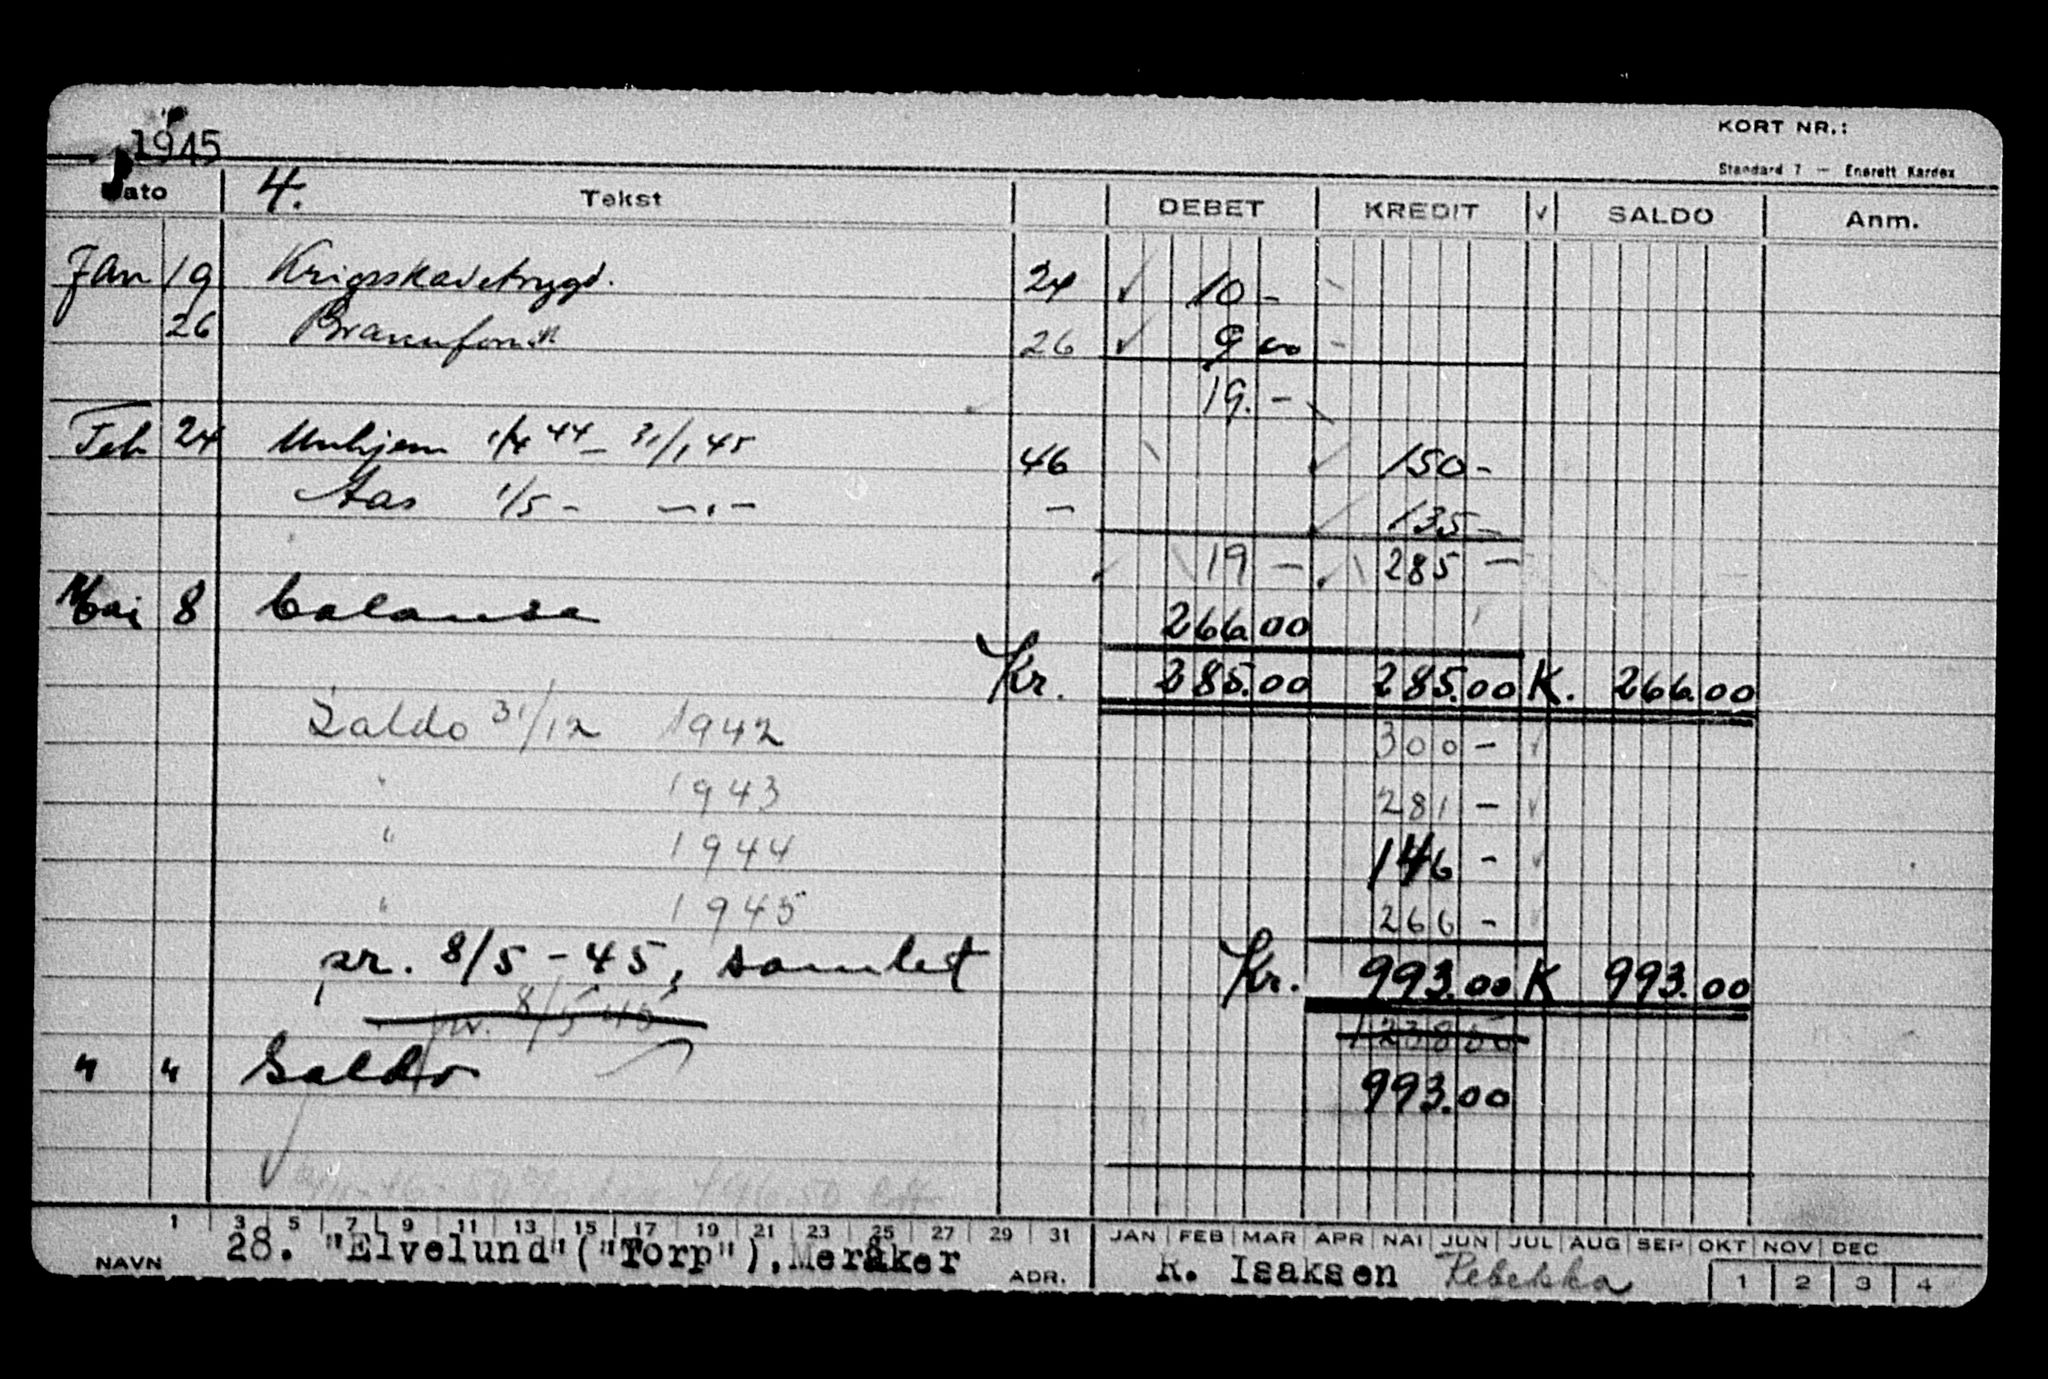 1945
KORT NR.:
Standard 7 — Enerett Kardex
Dato 4. Tekst DEBET KREDIT √ SALDO Anm.
Jan 19 Krigsskadetrygd. 24 10 -
26 Brannfond 26 9 00
19. -
Feb 24 Unhjem 1/4 44 - 31/1 45 46 150 -
Aas 1/5 - — " — — 135 -
19 - 285 -
Mai 8 balanse 266.00
Kr. 285.00 285.00 K. 266.00
Saldo 31/12 1942 300 -
" 1943 281 -
" 1944 146 -
" 1945 266 -
pr. 8/5 - 45, samlet Kr. 993.00 K 993.00
pr. 8/5 45
" " Saldo 993.00
1 3 5 7 9 11 13 15 17 19 21 23 25 27 29 31 JAN FEB MAR APR MAI JUN JUL AUG SEP OKT NOV DEC
NAVN 28. "Elvelund" ("Torp"), Meråker ADR. R. Isaksen Rebekka 1 2 3 4